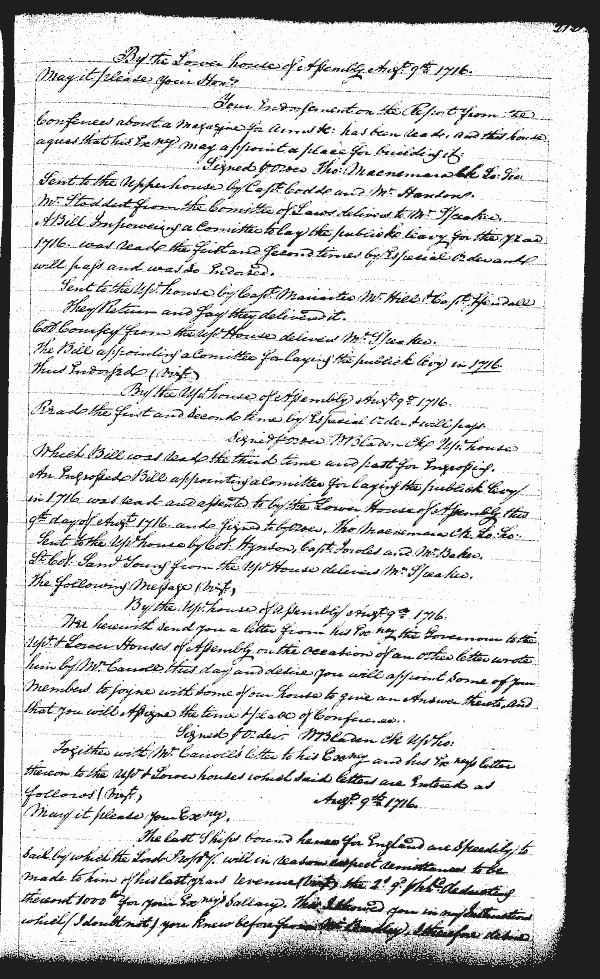 By the Lower house of Assembly Augt. 9th. 1716.
May it please your Honrs.
Your Endorsement on the Report from the
Conferees about a Magazyne for Arms &c: has been read, and this house
agrees that his Excncy may appoint a place for building it.
Signed p Order Tho: Macnemara Clk Lo: Ho:
Sent to the Upper house by Capt. Codds and Mr. Hanson.
Mr. Stoddert from the Comittee of Laws delivers to Mr. Speaker.
A Bill Impowering a Comittee to lay the publick leavy for the year
1716. was read the first and second times by Especial Order and
will pass and was so Endorsed.
Sent to the Upr. house by Capt. Mr. Hill & Capt.
They Return and say they delivered it.
Col Coursey from the Upr House delivers Mr. Speaker.
The Bill appointing a Comittee for laying the publick levy in 1716.
thus Endorsed (Vizt.)
By the Upr. house of Assembly Augt. 9th. 1716.
Read the first and second time by Especial Order & will pass.
Signed p Order W Bladen Clk Upr. house
Which Bill was read the third time and past for Engrossing.
An Engrossed Bill appointing a Comittee for laying the publick Levy
in 1716 was read and assented to by the Lower House of Assembly this
9th. day of Augt. 1716. and Signed by Order, Tho Macnemara Clk. Lo: Ho:
Sent to the Upr. house by Col. Hynson, Capt. and Mr. Baker.
Lt. Col. Saml. Young from the Upr House delivers Mr. Speaker.
the following Message (Vizt.)
By the Upr. house of Assembly Augt. 9th. 1716.
Wee herewith send you a letter from his Excncy the Governour to the
Upr. & Lower Houses of Assembly on the occasion of an other letter wrote
him by Mr. Carroll this day and desire you will appoint some of your
Members to joyne with some of our house to give an Answer thereto, and
that you will Assigne the time & place of Conference.
Signed p Order. W Bladen Clk Up. Ho:
Togither with Mr. Carroll's letter to his Excncy and his Excncys letter
thereon to the Upr. & Lower houses which said letters are Entred as
follows (Vizt.)
Augt. 9th. 1716.
May it please your Excncy.
The last Ships bound hence for England are Speedily to
Sail by which the Lord Propry. will in reason expect remittances to be
made to him of his last years revenue (Vizt) the 2s. p hhd. Deducting
thereout 1000 for your Excncys Sallary. This I shewed you in my Instructions
which (I doubt not) you knew before from Mr. I therefore desire